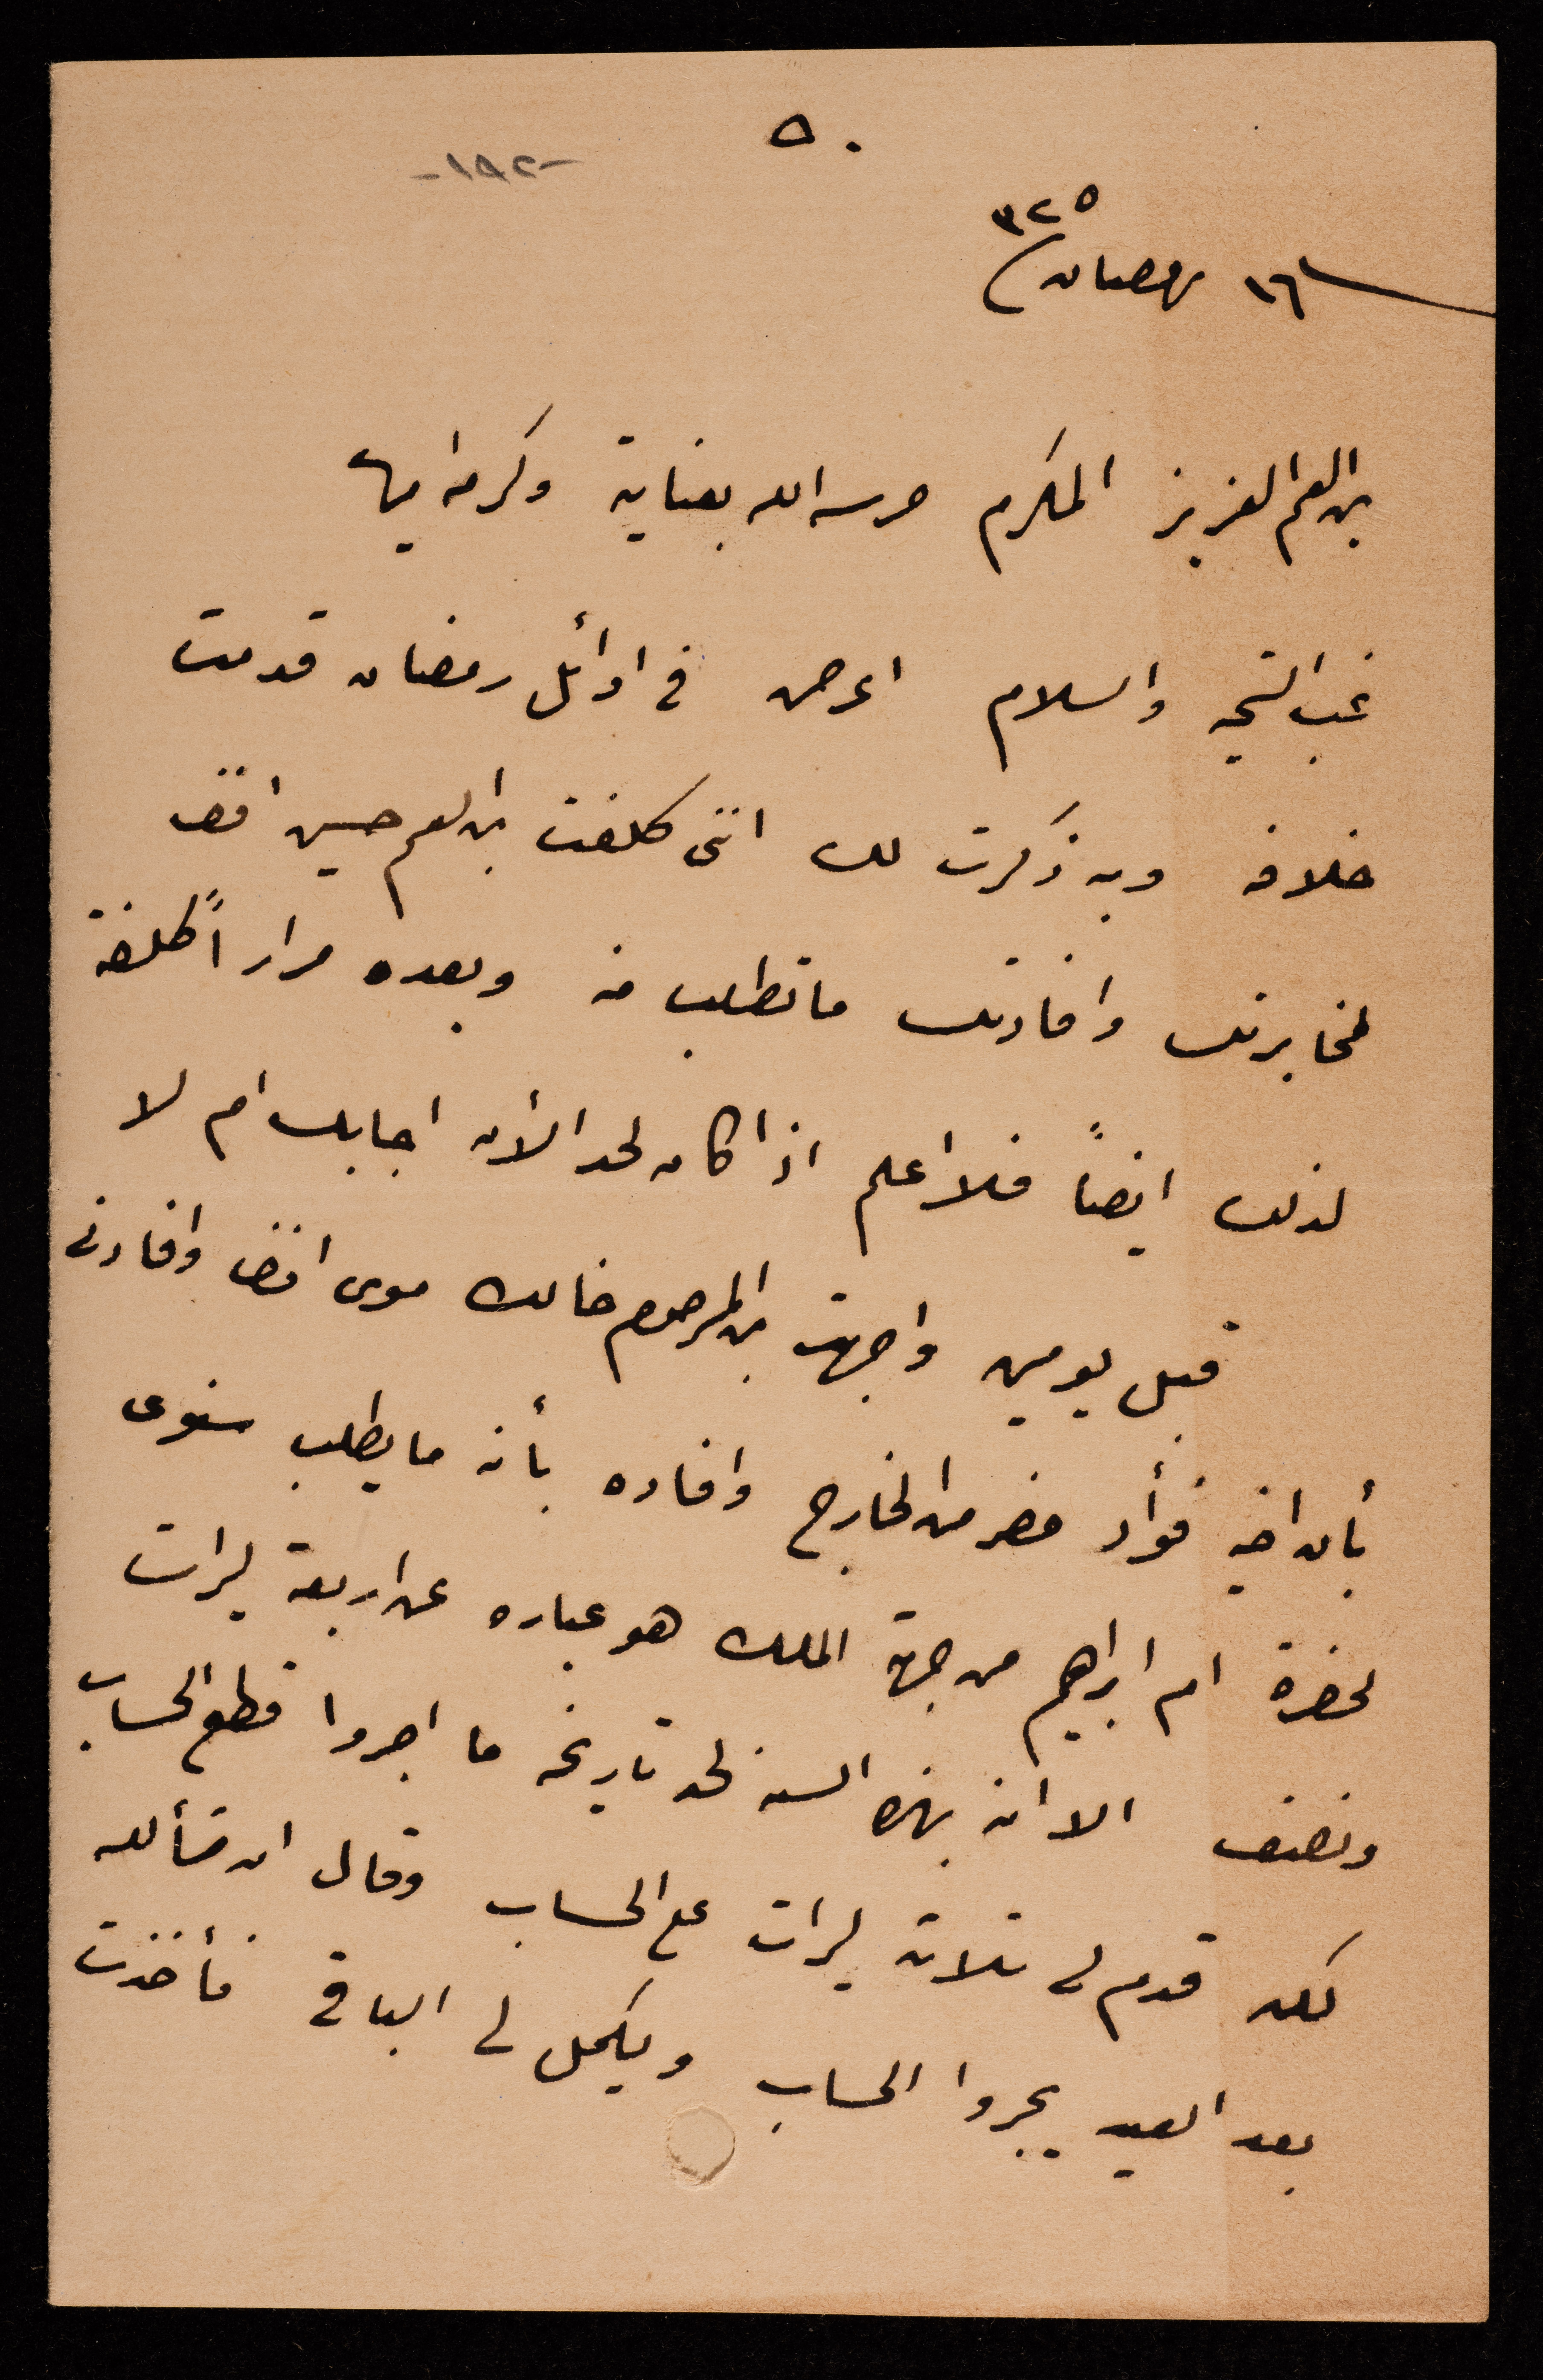 ٥٠
-١٨٢-
٣٢٥
١٦ رمضان
ابن العم العزيز المكرم حرسه الله بعنايته وكرمه امين
غب التحيه والسلام اعرض في اوائل رمضان قدمت
خلافه وبه ذكرت لك انني كلفت ابن العم حسين افندي
لمخابرتك وافادتك ما تطلب منه وبعده مراراً كلفته
لذلك ايضاً فلا اعلم اذا كان لحد الان اجابك ام لا
قبل يومين واجهت ابن المرحوم خالك موسى افندي وافادني
بأن اخيه فؤاد حضر من الخارج وافاده بأنه ما يطلب سنوى
لحضرة ام ابراهيم من جهة الملك هو عباره عن اربعة ليرات
ونصف الا انه بهذه السنه لحد تاريخه ما اجروا قطع الحساب
لكنه قدم لي ثلاثة ليرات على الحساب وقال ان شأ الله
بعد العيد يجروا الحساب ويكمل لي الباقي فأخذت